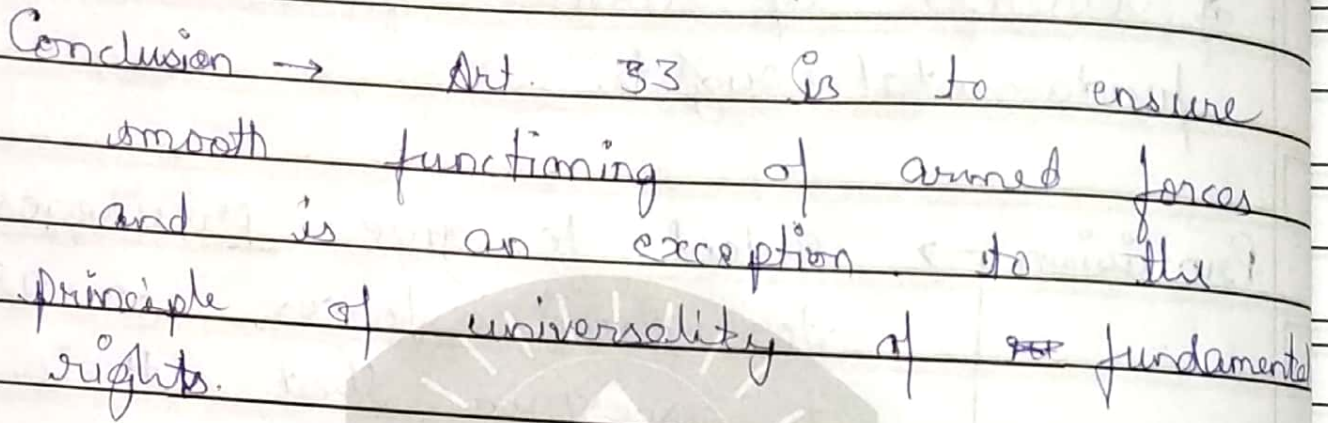 Conclusion → Art. 33 is to ensure
smooth functioning of armed forces
and is an exception to the
principle of universality of fundamental
rights.